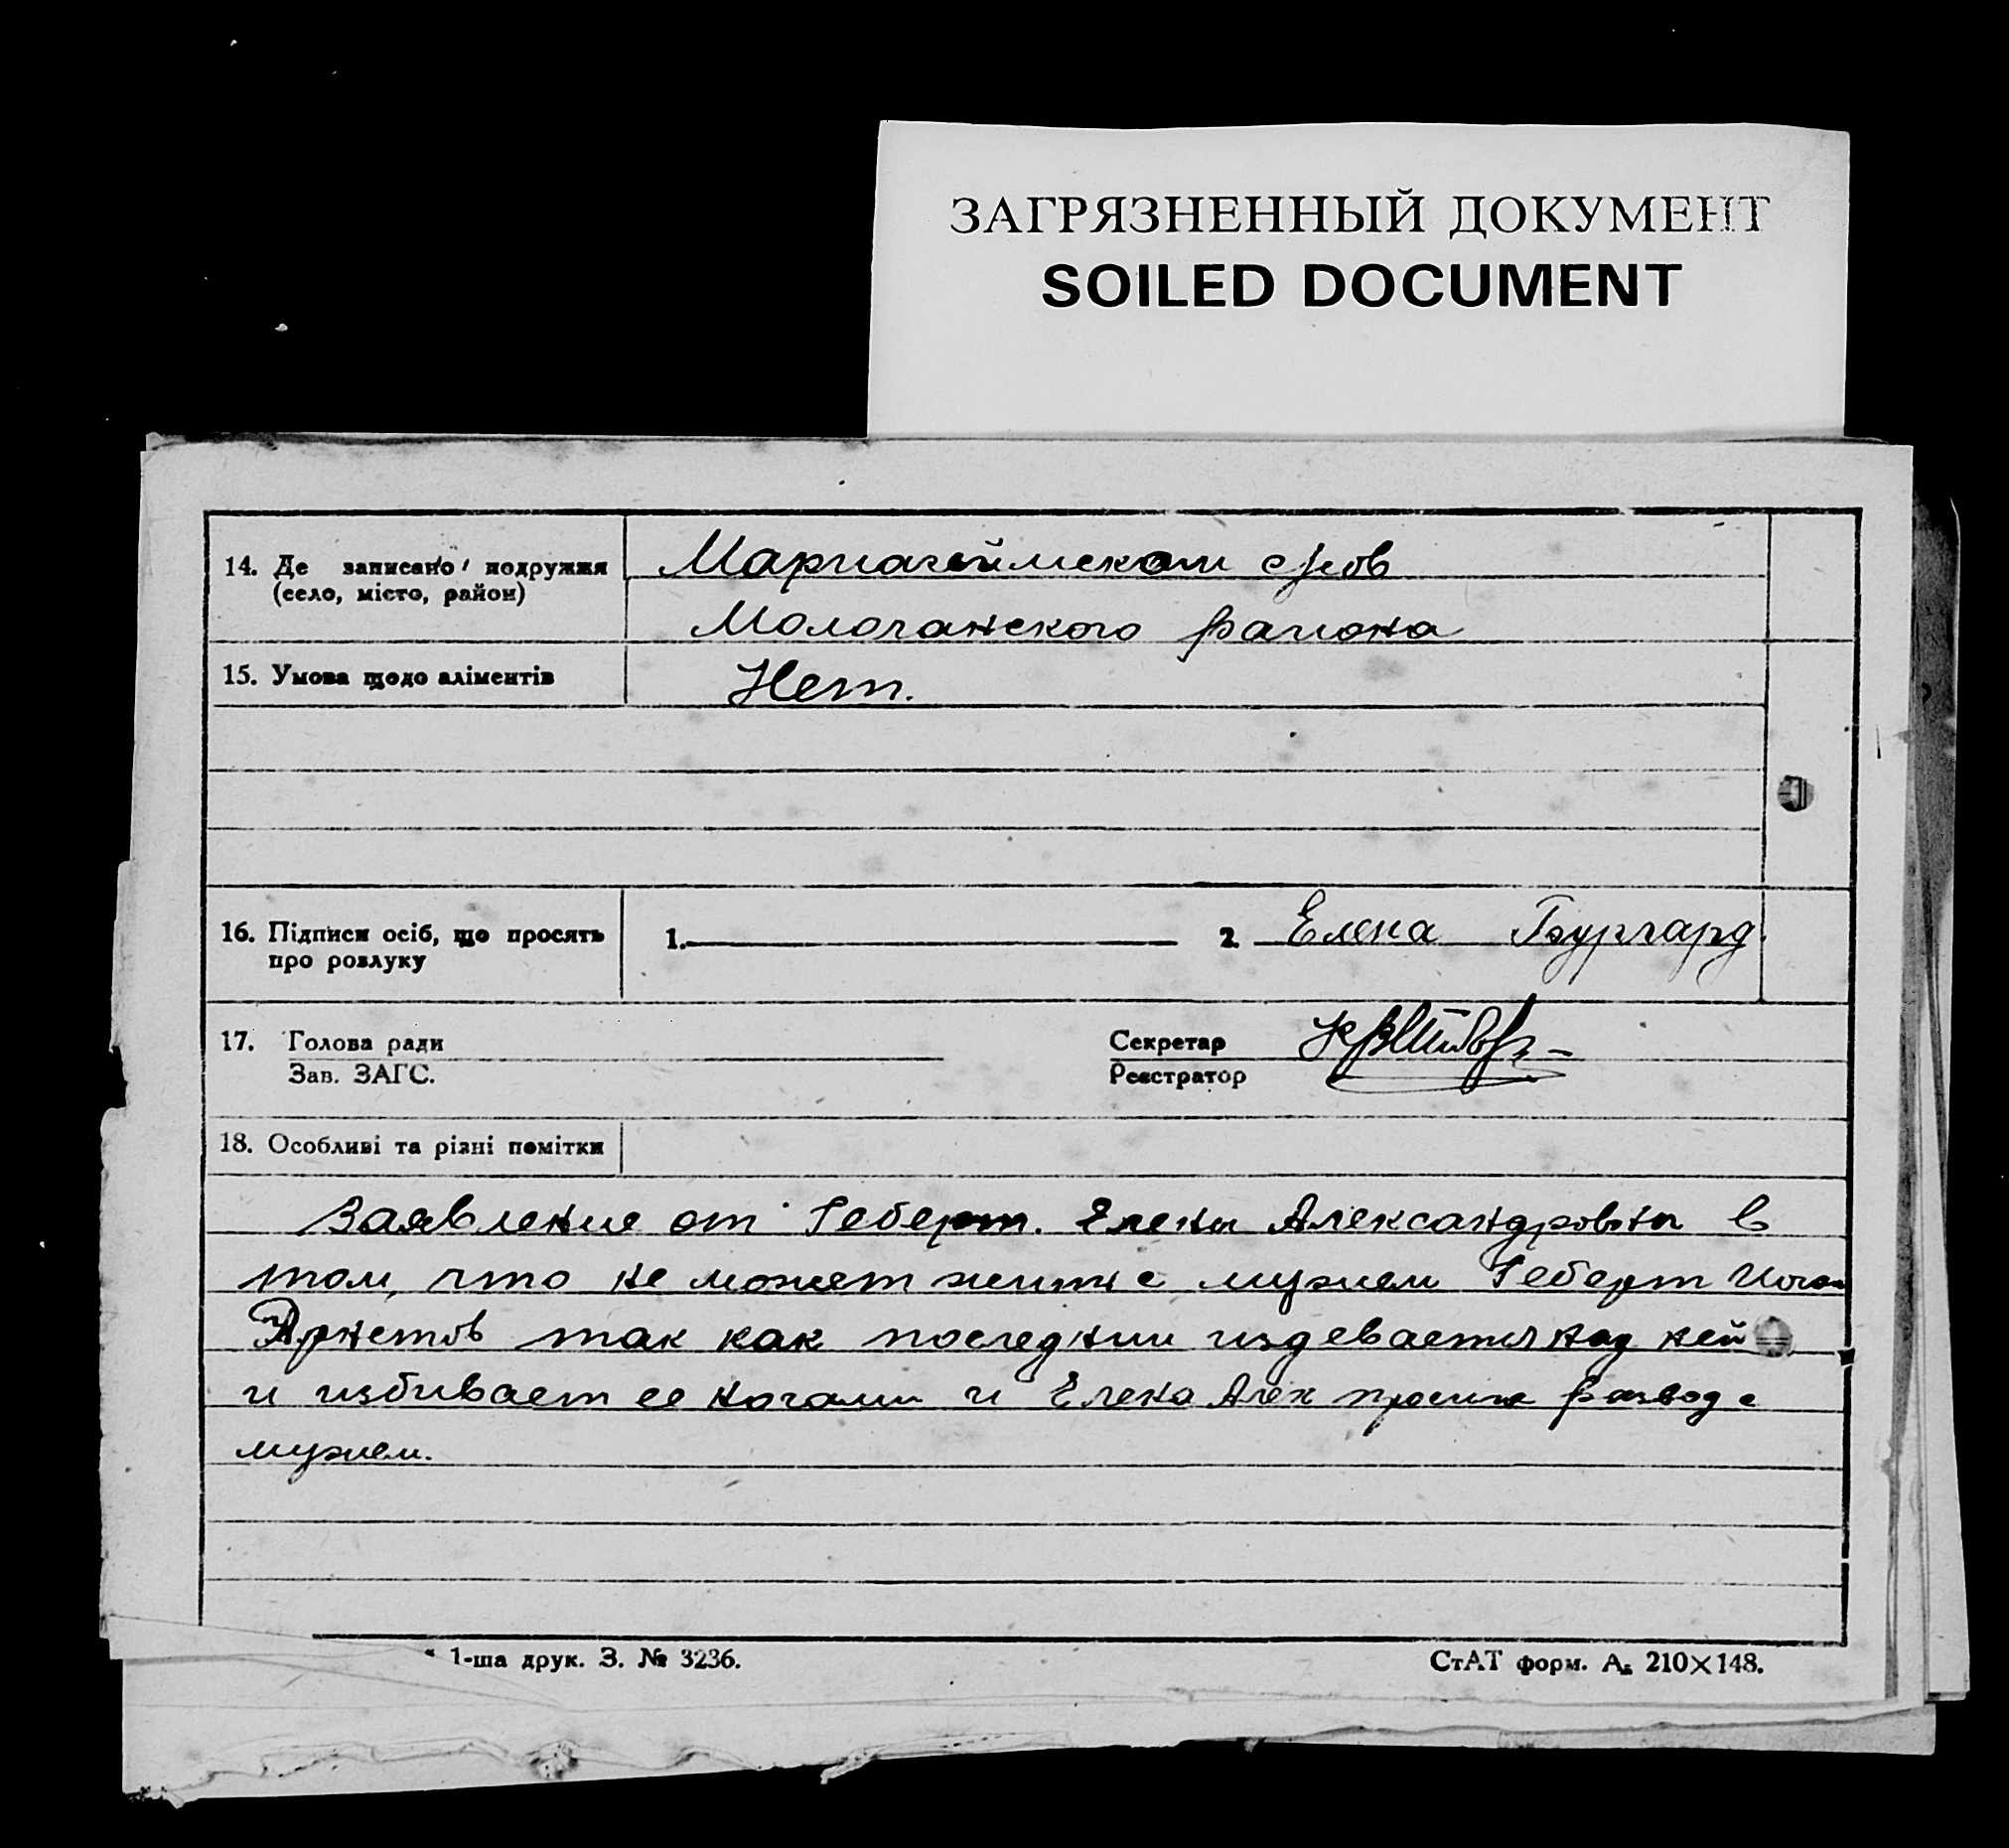 ЗАГРЯЗНЕННЫЙ ДОКУМЕНТ
SOILED DOCUMENT
14. Де записано подружжя
(село, місто, район)
Мариагеймском с/сов
Молочанского района
15. Умова щодо аліментів
Нет.
16. Підписи осіб, що просять
про розлуку
1. 2. Елена Бургард
17. Голова ради
Зав. ЗАГС.
Секретар
Реєстратор
18. Особливі та різні помітки
Заявление от Геберт. Елены Александровны в
том, что не может жить с мужем Геберт Иоган
так как последнии издевается над ней
и избивает ее ногами и Елена Алек просит развод с
мужем.
1-ша друк. З. № 3236.
СтАТ форм. А₅ 210×148.